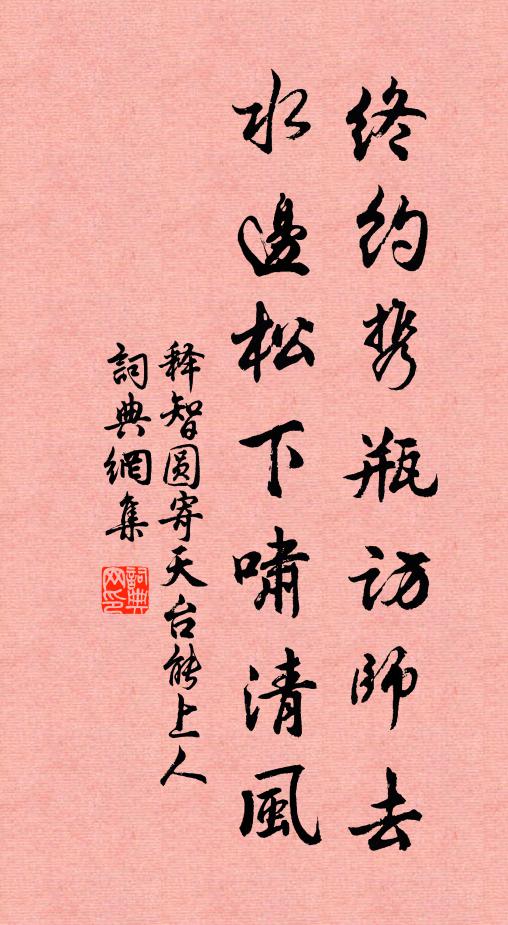 终约携瓶访师去
水邊松下嘯清風
释智圆寄天台能上人
詞典網集
詞典网印